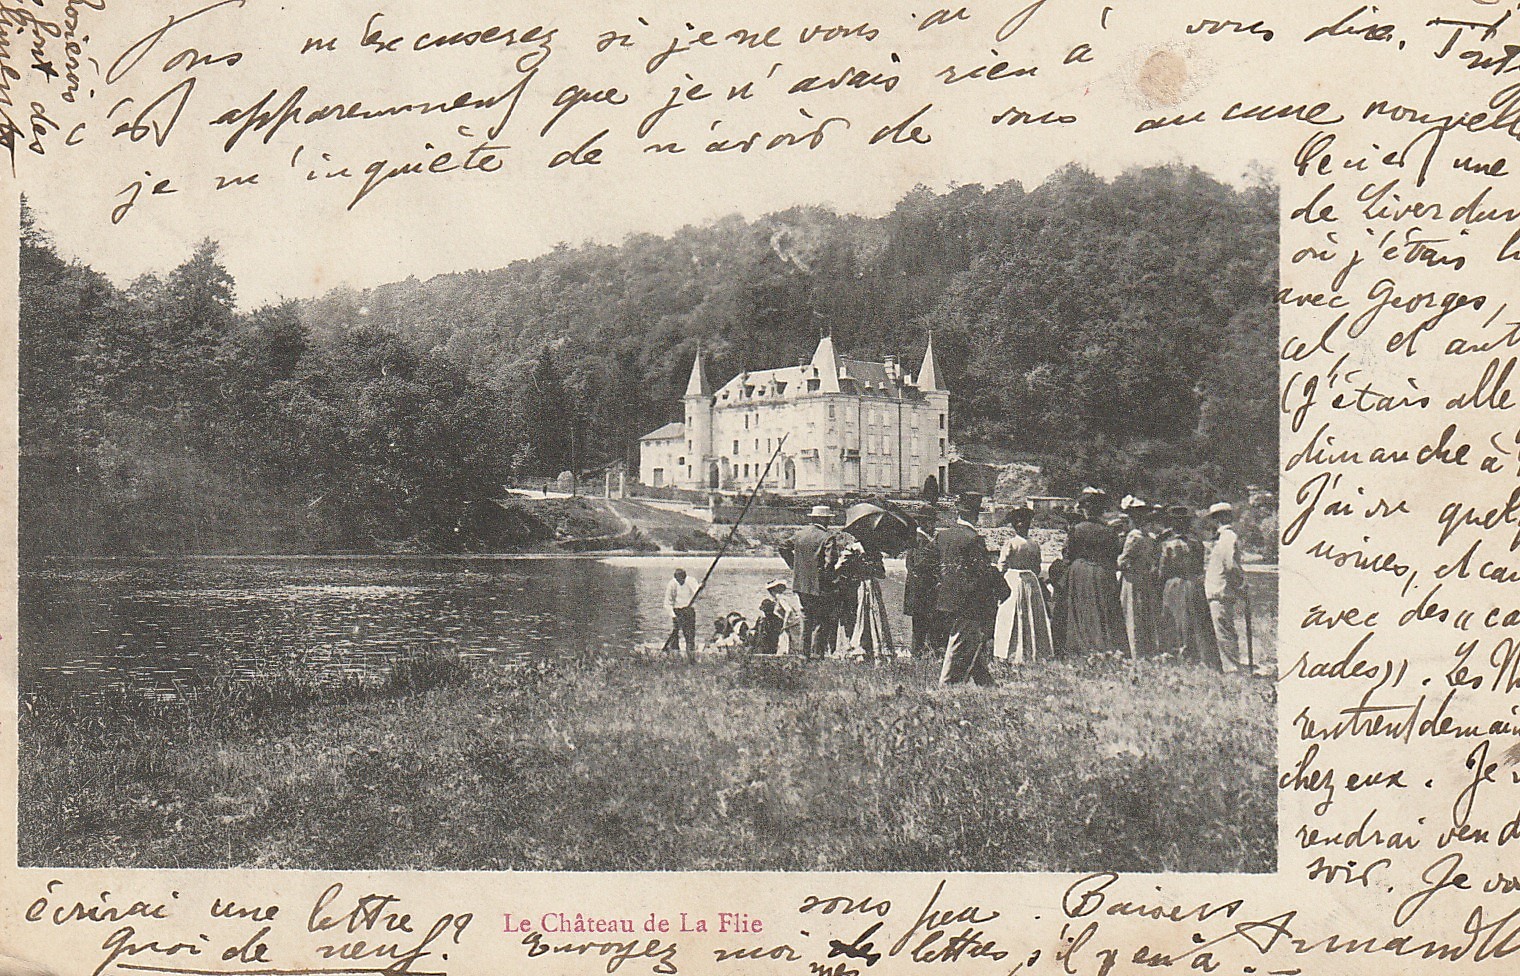 Vous m'excuserez si je ne vous ai
vous dire. Tout
c'est apparemment que je n'avais rien à
je m'inquiète de n'avoir de vous aucune nouvell
Ceci est une
de Liverdun
où j'étais
avec Georges,
cel, et aut
(J'étais allé
dimanche à
J'ai vu quelq
usines, et cau
avec des "ca
rades". Les
rentrent demain
chez eux. Je
rendrai vend
soir. Je vo
écrirai une lettre
sous peu. Baisers
Le Château de La Flie
Quoi de neuf? Envoyez moi mes lettres, s'il y en a. Armand
font des